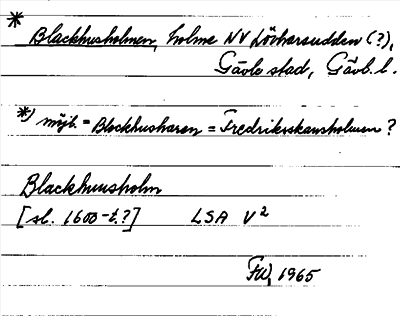 * Blackhusholmen, holme NV Lövharsudden (?),
Gävle stad, Gävb. l.
*) möjl. = Blockhusharen = Fredriksskansholmen ?
Blackhuusholm
[sl. 1600-t.?] LSA V2
FW, 1965